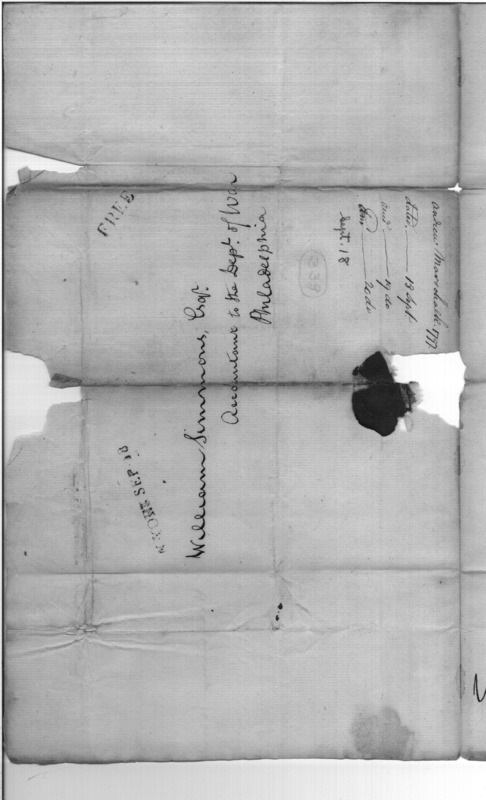 FREE
N YORK SEP 18
William Simmons, Esqr.
Accountant to the Dept. of War
Philadelphia
Sept. 18
339
Andrew Marschalk
dated 18 Sept
19 do
20 do